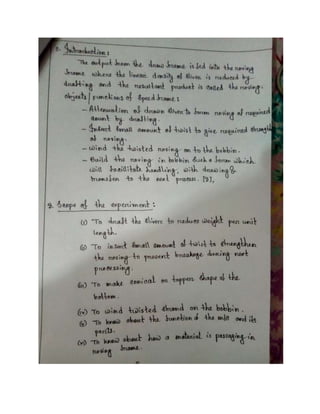 1. Introduction :
The output from the draw frame is fed into the roving
frame where the linear density of sliver is reduced by
drafting and the resultant product is called the roving.
objects / functions of Speed frame :
- Attenuation of drawn slivers to form roving of required
count by drafting.
- Insert small amount of twist to give required strength
of roving.
- Wind the twisted roving on to the bobbin.
- Build the roving in bobbin such a form which
will facilitate handling, with drawing &
transfer to the next process.
2. Scope of the experiment :
(i) To draft the slivers to reduce weight per unit
length.
(ii) To insert small amount of twist to strengthen
the roving to prevent breakage during next
processing.
(iii) To make conical or tapper shape of the
bottom.
(iv) To wind twisted strand on the bobbin.
(v) To know about the function of the m/c and its
parts.
(vi) To know about how a material is passaging in
roving frame.